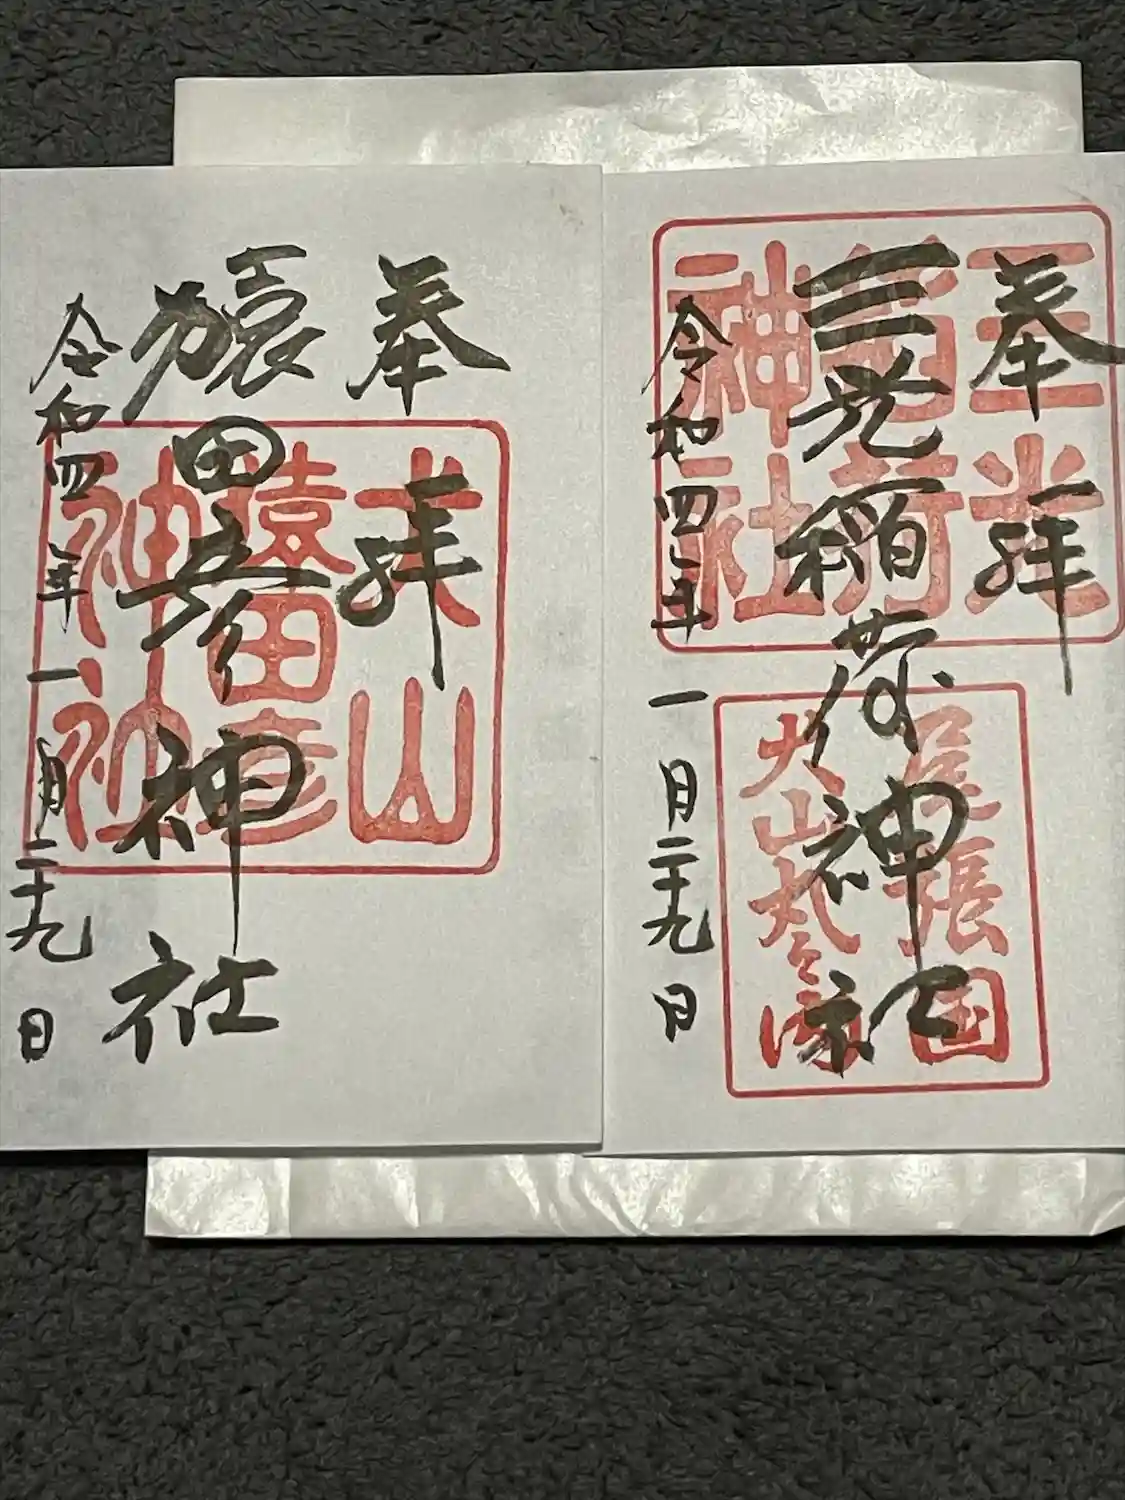 奉拝
三光稲荷神社
令和四年一月二十九日
三光
稲荷
神社
尾張国
犬山
奉拝
猿田彦神社
令和四年一月二十九日
犬山
猿田彦
神社